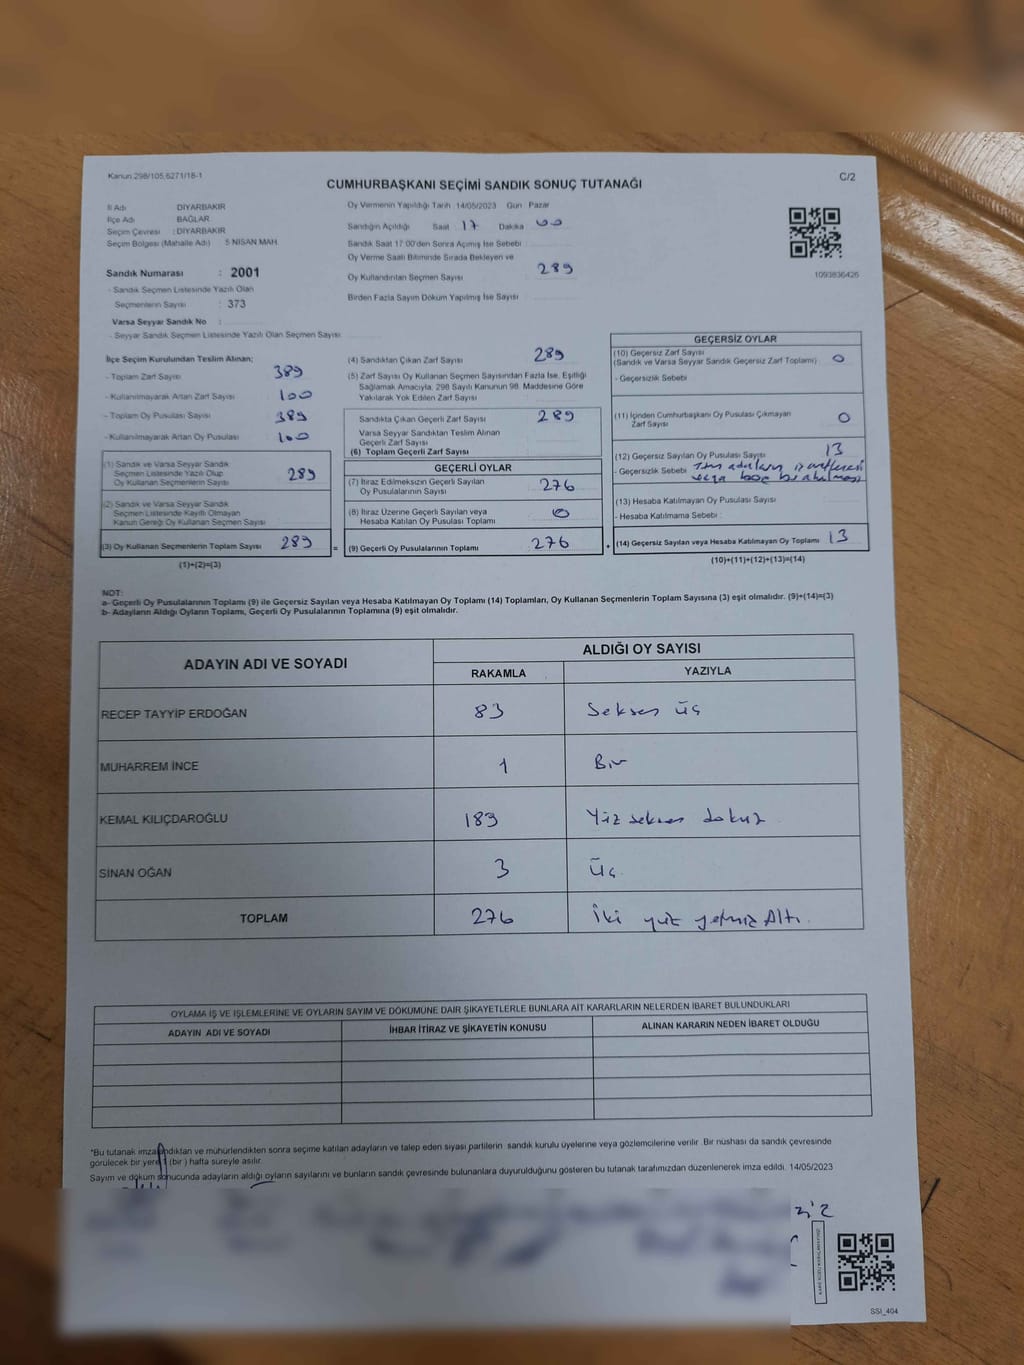 Kanun 298/105,6271/18-1
CUMHURBAŞKANI SEÇİMİ SANDIK SONUÇ TUTANAĞI
C/2
İl Adı DİYARBAKIR
İlçe Adı BAĞLAR
Seçim Çevresi : DİYARBAKIR
Seçim Bölgesi (Mahalle Adı) 5 NİSAN MAH.
Sandık Numarası : 2001
- Sandık Seçmen Listesinde Yazılı Olan
Seçmenlerin Sayısı : 373
Varsa Seyyar Sandık No :
- Seyyar Sandık Seçmen Listesinde Yazılı Olan Seçmen Sayısı
Oy Vermenin Yapıldığı Tarih 14/05/2023 Gün Pazar
Sandığın Açıldığı Saat 17 Dakika 00
Sandık Saat 17:00'den Sonra Açılmış İse Sebebi
Oy Verme Saati Bitiminde Sırada Bekleyen ve
Oy Kullandırılan Seçmen Sayısı 289
Birden Fazla Sayım Döküm Yapılmış İse Sayısı
1093836426
İlçe Seçim Kurulundan Teslim Alınan;
- Toplam Zarf Sayısı 389
- Kullanılmayarak Artan Zarf Sayısı 100
- Toplam Oy Pusulası Sayısı 389
- Kullanılmayarak Artan Oy Pusulası 100
(1) Sandık ve Varsa Seyyar Sandık
Seçmen Listesinde Yazılı Olup
Oy Kullanan Seçmenlerin Sayısı 289
(2) Sandık ve Varsa Seyyar Sandık
Seçmen Listesinde Kayıtlı Olmayan
Kanun Gereği Oy Kullanan Seçmen Sayısı
(3) Oy Kullanan Seçmenlerin Toplam Sayısı 289
(1)+(2)=(3)
=
(4) Sandıktan Çıkan Zarf Sayısı 289
(5) Zarf Sayısı Oy Kullanan Seçmen Sayısından Fazla İse, Eşitliği
Sağlamak Amacıyla, 298 Sayılı Kanunun 98. Maddesine Göre
Yakılarak Yok Edilen Zarf Sayısı
Sandıkta Çıkan Geçerli Zarf Sayısı 289
Varsa Seyyar Sandıktan Teslim Alınan
Geçerli Zarf Sayısı
(6) Toplam Geçerli Zarf Sayısı
GEÇERLİ OYLAR
(7) İtiraz Edilmeksizin Geçerli Sayılan
Oy Pusulalarının Sayısı 276
(8) İtiraz Üzerine Geçerli Sayılan veya
Hesaba Katılan Oy Pusulası Toplamı 0
(9) Geçerli Oy Pusulalarının Toplamı 276
+
GEÇERSİZ OYLAR
(10) Geçersiz Zarf Sayısı
(Sandık ve Varsa Seyyar Sandık Geçersiz Zarf Toplamı) 0
- Geçersizlik Sebebi
(11) İçinden Cumhurbaşkanı Oy Pusulası Çıkmayan
Zarf Sayısı 0
(12) Geçersiz Sayılan Oy Pusulası Sayısı 13
- Geçersizlik Sebebi Tüm adayların işaretlenmesi
veya boş bırakılması
(13) Hesaba Katılmayan Oy Pusulası Sayısı
- Hesaba Katılmama Sebebi :
(14) Geçersiz Sayılan veya Hesaba Katılmayan Oy Toplamı 13
(10)+(11)+(12)+(13)=(14)
NOT:
a- Geçerli Oy Pusulalarının Toplamı (9) ile Geçersiz Sayılan veya Hesaba Katılmayan Oy Toplamı (14) Toplamları, Oy Kullanan Seçmenlerin Toplam Sayısına (3) eşit olmalıdır. (9)+(14)=(3)
b- Adayların Aldığı Oyların Toplamı, Geçerli Oy Pusulalarının Toplamına (9) eşit olmalıdır.
ADAYIN ADI VE SOYADI
ALDIĞI OY SAYISI
RAKAMLA YAZIYLA
RECEP TAYYİP ERDOĞAN 83 Seksen üç
MUHARREM İNCE 1 Bir
KEMAL KILIÇDAROĞLU 189 Yüz seksen dokuz
SİNAN OĞAN 3 Üç
TOPLAM 276 İki yüz yetmiş Altı
OYLAMA İŞ VE İŞLEMLERİNE VE OYLARIN SAYIM VE DÖKÜMÜNE DAİR ŞİKAYETLERLE BUNLARA AİT KARARLARIN NELERDEN İBARET BULUNDUKLARI
ADAYIN ADI VE SOYADI İHBAR İTİRAZ VE ŞİKAYETİN KONUSU ALINAN KARARIN NEDEN İBARET OLDUĞU
*Bu tutanak imzalandıktan ve mühürlendikten sonra seçime katılan adayların ve talep eden siyasi partilerin sandık kurulu üyelerine veya gözlemcilerine verilir .Bir nüshası da sandık çevresinde
görülecek bir yere 1 (bir ) hafta süreyle asılır.
Sayım ve döküm sonucunda adayların aldığı oyların sayılarını ve bunların sandık çevresinde bulunanlara duyurulduğunu gösteren bu tutanak tarafımızdan düzenlenerek imza edildi. 14/05/2023
SSI_404